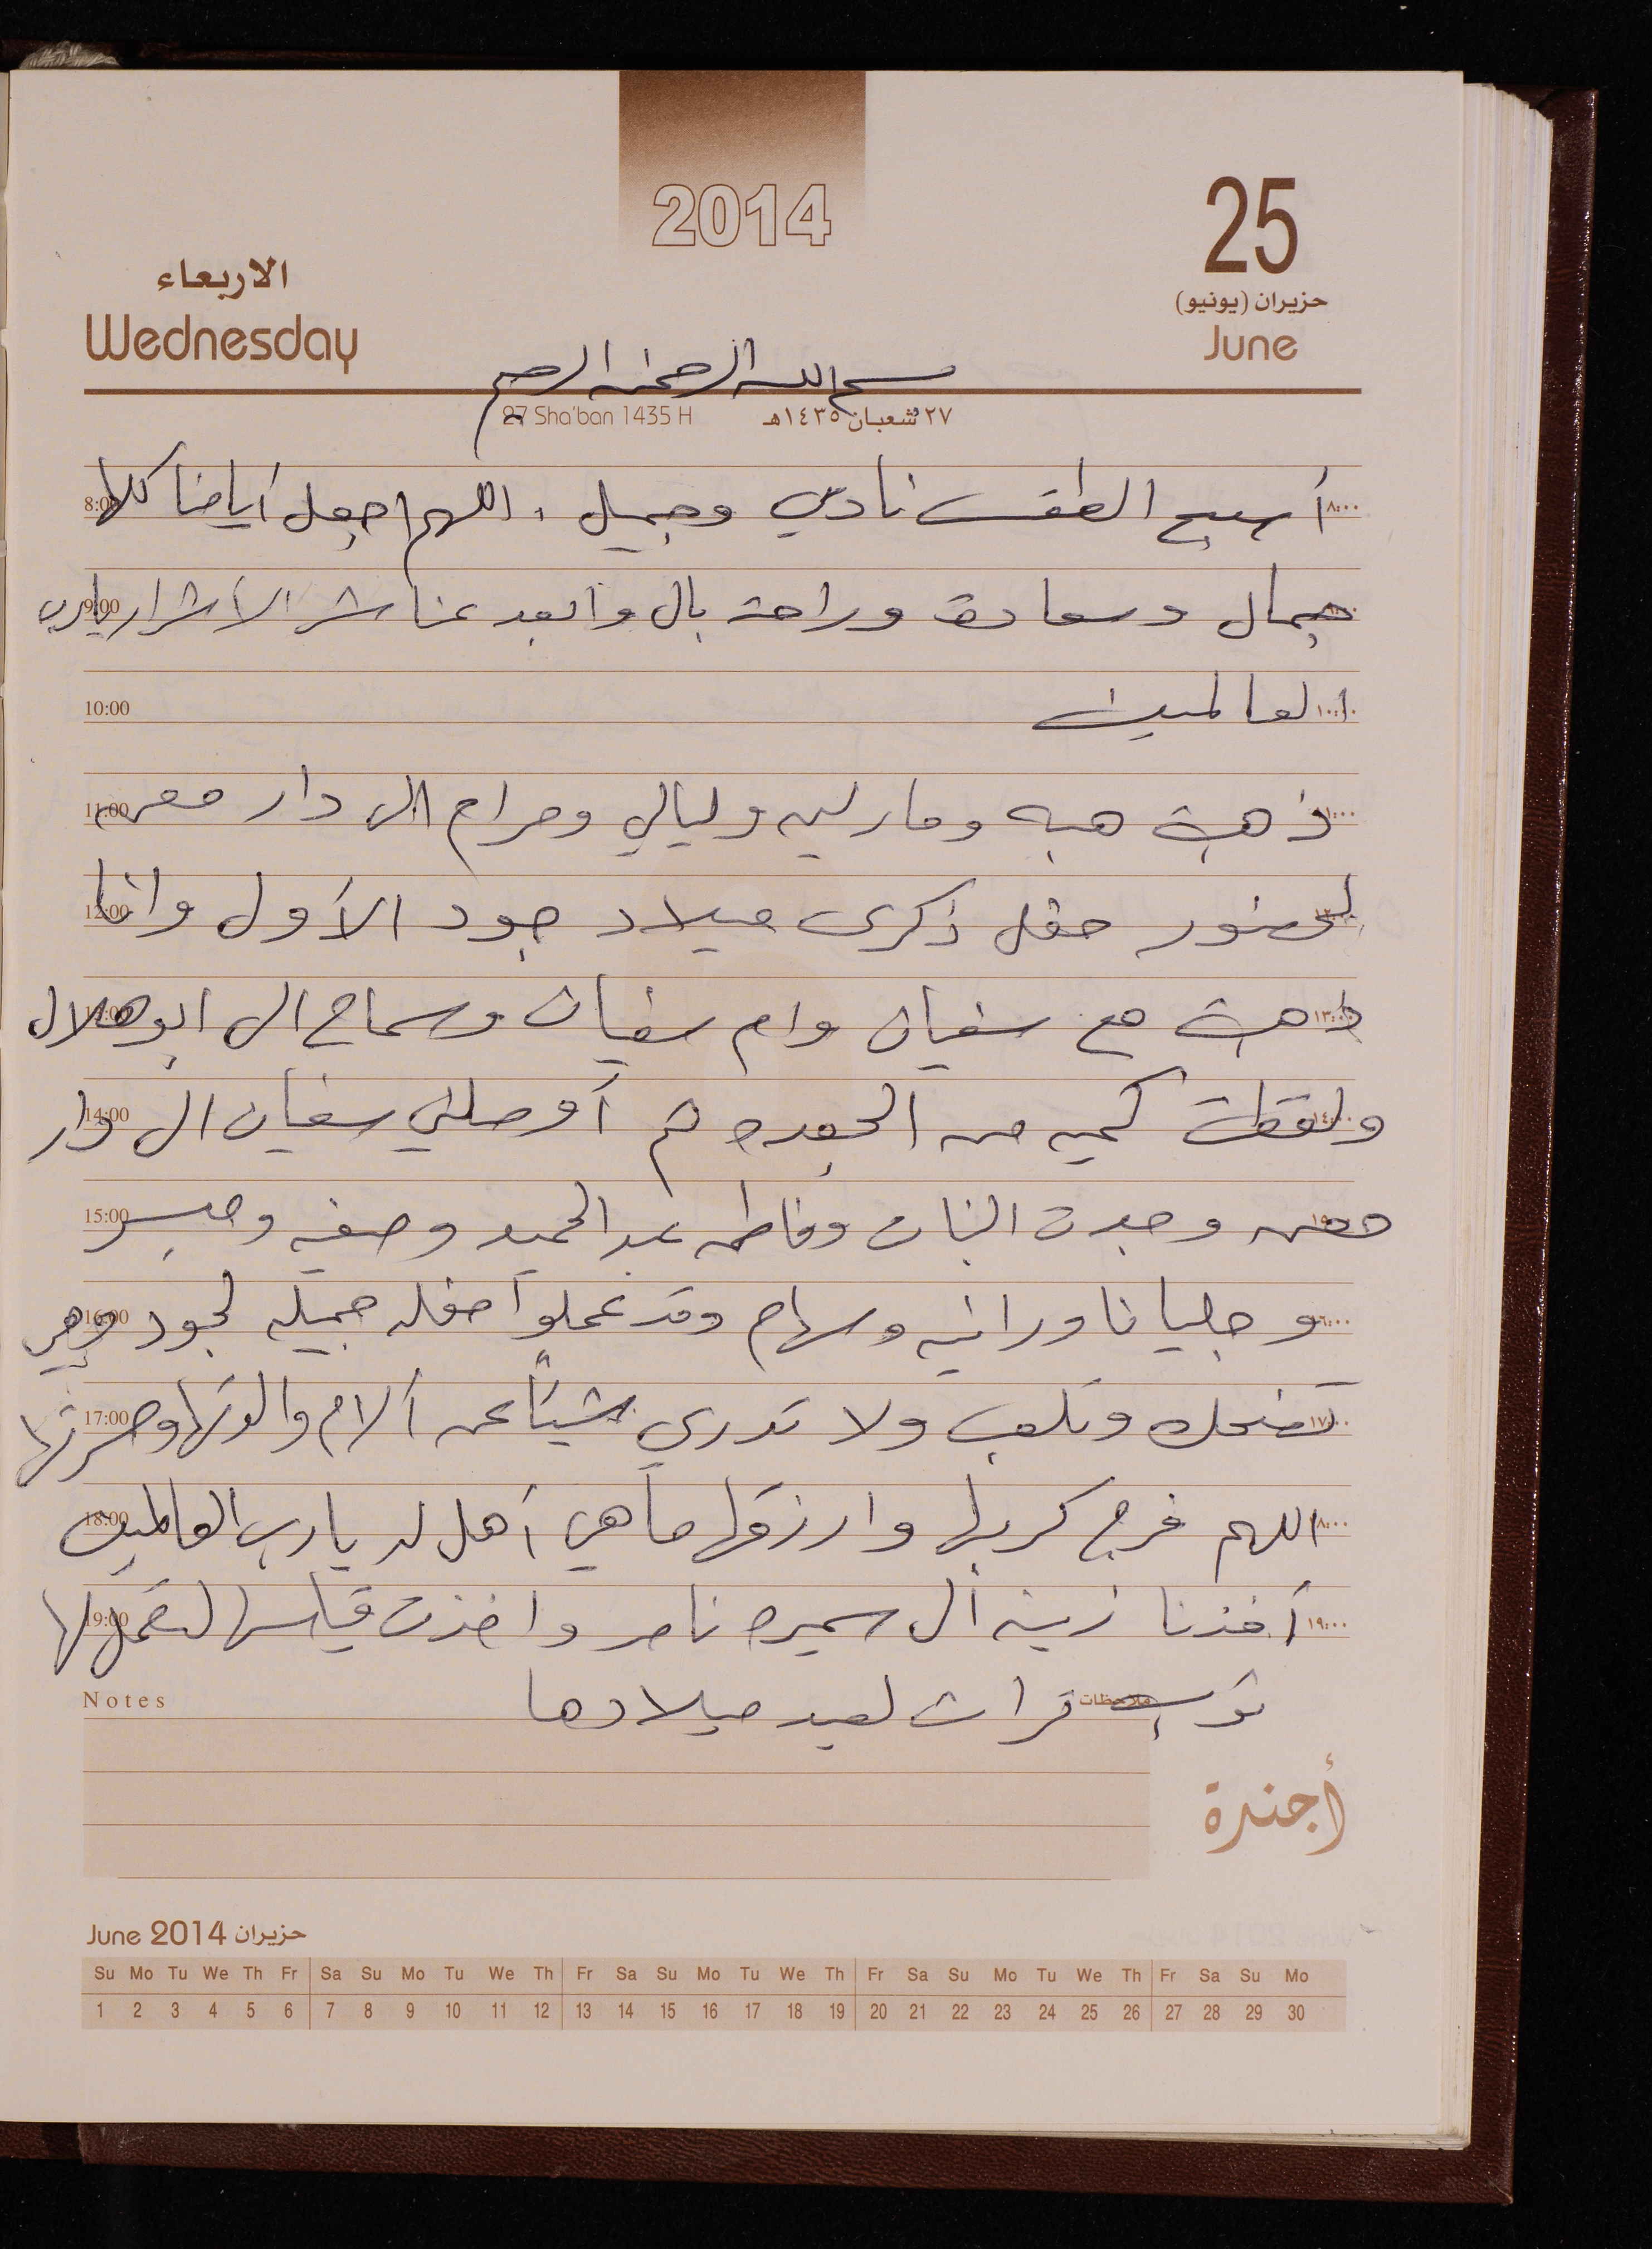 2014
25
حزيران (يونيو)
June
الاربعاء
Wednesday
بسم الله الرحمن الرحيم
27 Sha'ban 1435 H ٢٧ شعبان ١٤٣٥هـ
8:00 أصبح الطقس نادي وجميل، اللهم اجعل أيامنا كلها ٨:٠٠
9:00 جمال وسعادة وراحة بال وابعد عنا شر الأشرار يارب
10:00 العالمين ١٠:٠٠
11:00 ذهبت هبه ومارليه وليالي ومرام الى دار معن
12:00 لحضور حفل ذكرى ميلاد جود الأول وانا
ذهبت مع سفيان وام سفيان وسماح الى ابوهلال ١٣:٠٠
14:00 ولقطت كميه من الجعده ثم أوصلني سفيان الى دار
15:00 معن وجدت البنات وفاطمه عبدالحميد وصفيه وميسر
16:00 وجليانا ورانيه وسهام وقد عملوا حفله جميله لجود وهي ١٦:٠٠
17:00 تضحك وتلعب ولا تدري شيئاً عن ألام والدتها وحسرتها ١٧:٠٠
18:00 اللهم فرج كربها وارزقها ما هي أهل له يارب العالمين ١٨:٠٠
19:00 أخذنا زينه ال سميره ناصر واخذت قياسها لتعمل لها ١٩:٠٠
Notes ثوب تراث لعيد ميلادها ملاحظات
أجندة
June 2014 حزيران
Su Mo Tu We Th Fr Sa Su Mo Tu We Th Fr Sa Su Mo Tu We Th Fr Sa Su Mo Tu We Th Fr Sa Su Mo
1 2 3 4 5 6 7 8 9 10 11 12 13 14 15 16 17 18 19 20 21 22 23 24 25 26 27 28 29 30